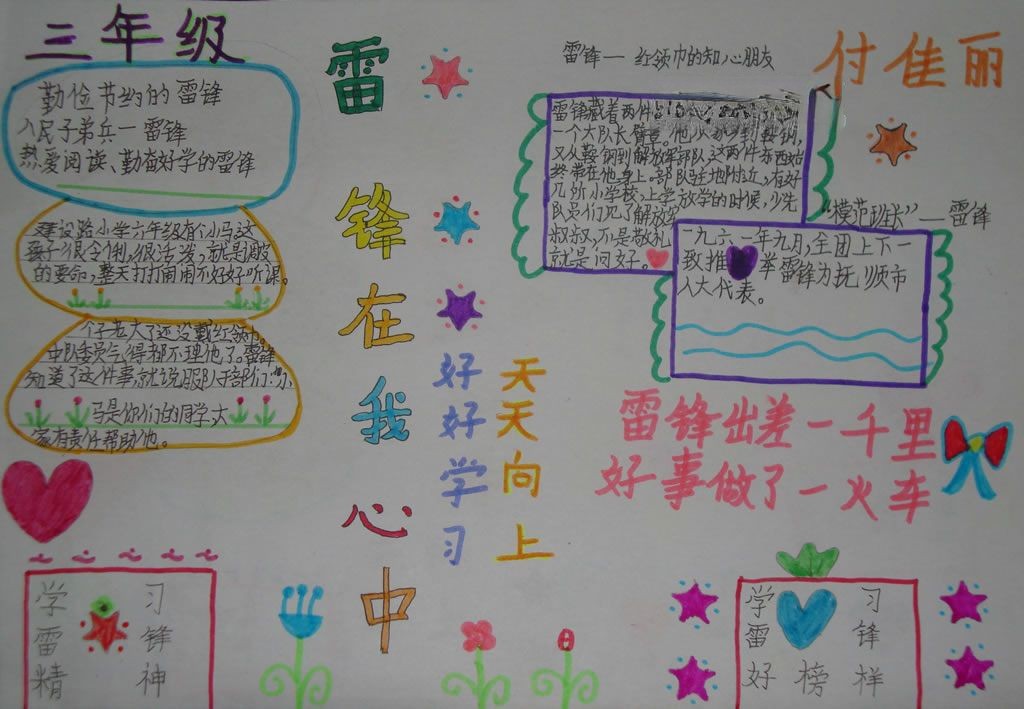 三年级
勤俭节约的雷锋
人民子弟兵一雷锋
热爱阅读、勤奋好学的雷锋
建设路小学六年级有个小马,这
孩子很令俐,很活泼,就是调皮
的要命,整天打打闹闹不好好听课。
个子老大了还没戴红领巾。
中队委员气得都不理他了。雷锋
知道了这件事,就说服队干部们:小
马是你们的同学,大
家有责任帮助他。
学习
雷锋
精神
雷锋在我心中
好好学习
天天向上
雷锋一红领巾的知心朋友
付佳丽
雷锋戴着两件
一个大队长臂章。他
又从鞍钢到解放军部队,这两件东西始
终带在他身上。部队驻地附近,有好
几所小学校,上学放学的时候,少先
队员们见了解放军
叔叔,不是敬礼
就是问好。
“模范班长”一雷锋
一九六一年九月,全团上下一
致推举雷锋为抚顺市
人大代表。
雷锋出差一千里
好事做了一火车
学习
雷锋
好榜样